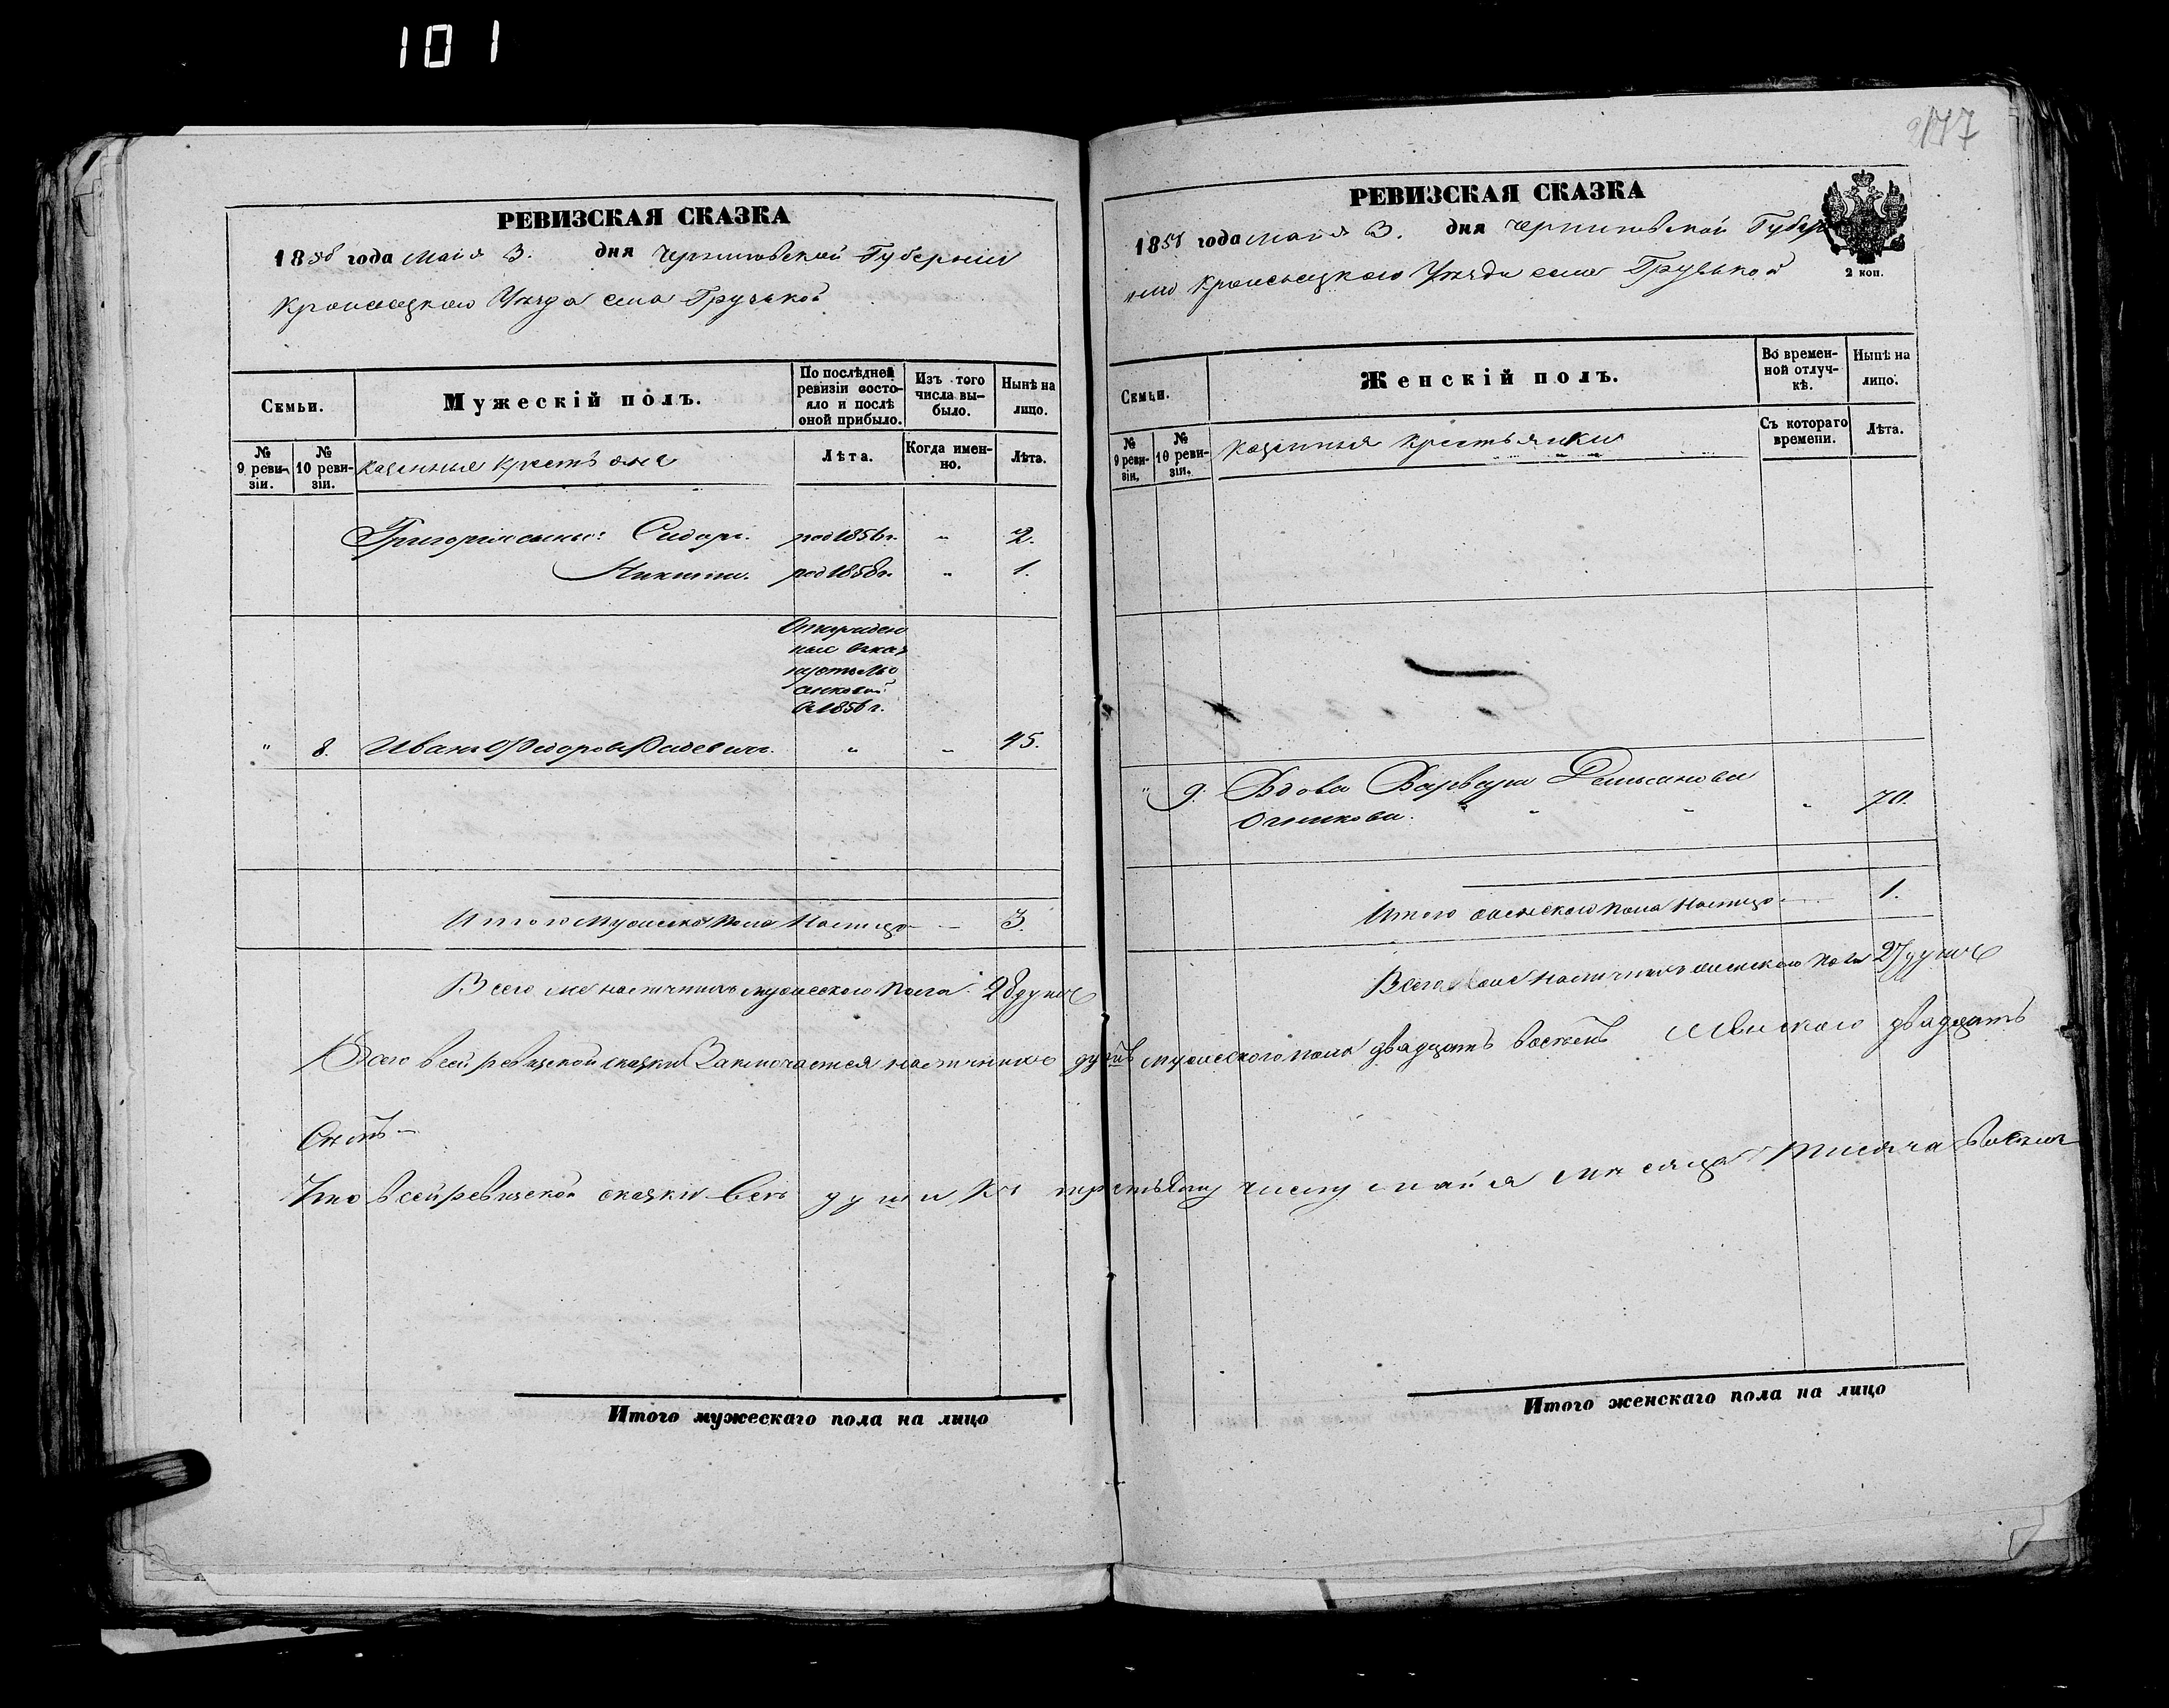 101
РЕВИЗСКАЯ СКАЗКА
1858 года Маія 3. дня Черниговской Губерніи
Кролевецкаго Уезда села Грузской
Семьи.
Мужескій полъ.
По послѣдней ревизіи состояло и послѣ оной прибыло.
Изъ того числа выбыло.
Нынѣ на лицо.
№ 9 ревизіи.
№ 10 ревизіи.
Казенные крестьяне
Лѣта.
Когда именно.
Лѣта.
Григорія сыны: Сидоръ. род 1856 г. " 2.
Никита. род 1858 г. " 1.
1856 г.
" 8. Иванъ Федоровъ " " 45.
Итого мужеска пола налицо 3.
Всего же наличныхъ мужескаго пола 28 душъ
РЕВИЗСКАЯ СКАЗКА
1858 года Маія 3. дня Черниговской Губер
ніи Кролевецкаго Уезда села Грузской
2 коп.
Семьи.
Женскій полъ.
Во временной отлучкѣ.
Нынѣ на лицо.
№ 9 ревизіи.
№ 10 ревизіи.
Казенныя крестьянки
Съ котораго времени.
Лѣта.
" 9. Вдова Варвара Демьянова
" 70.
Итого женскаго пола налицо 1.
Всего наличныхъ женскаго пола 27 душъ
Всего в сей ревизской сказки Заключается наличныхъ душъ мужескаго пола двадцать восемь Женскаго двадцать
Семь
Что в сей ревизской сказки Все души Къ третьему числу маія месяца Тысяча восемь
Итого мужескаго пола на лицо
Итого женскаго пола на лицо